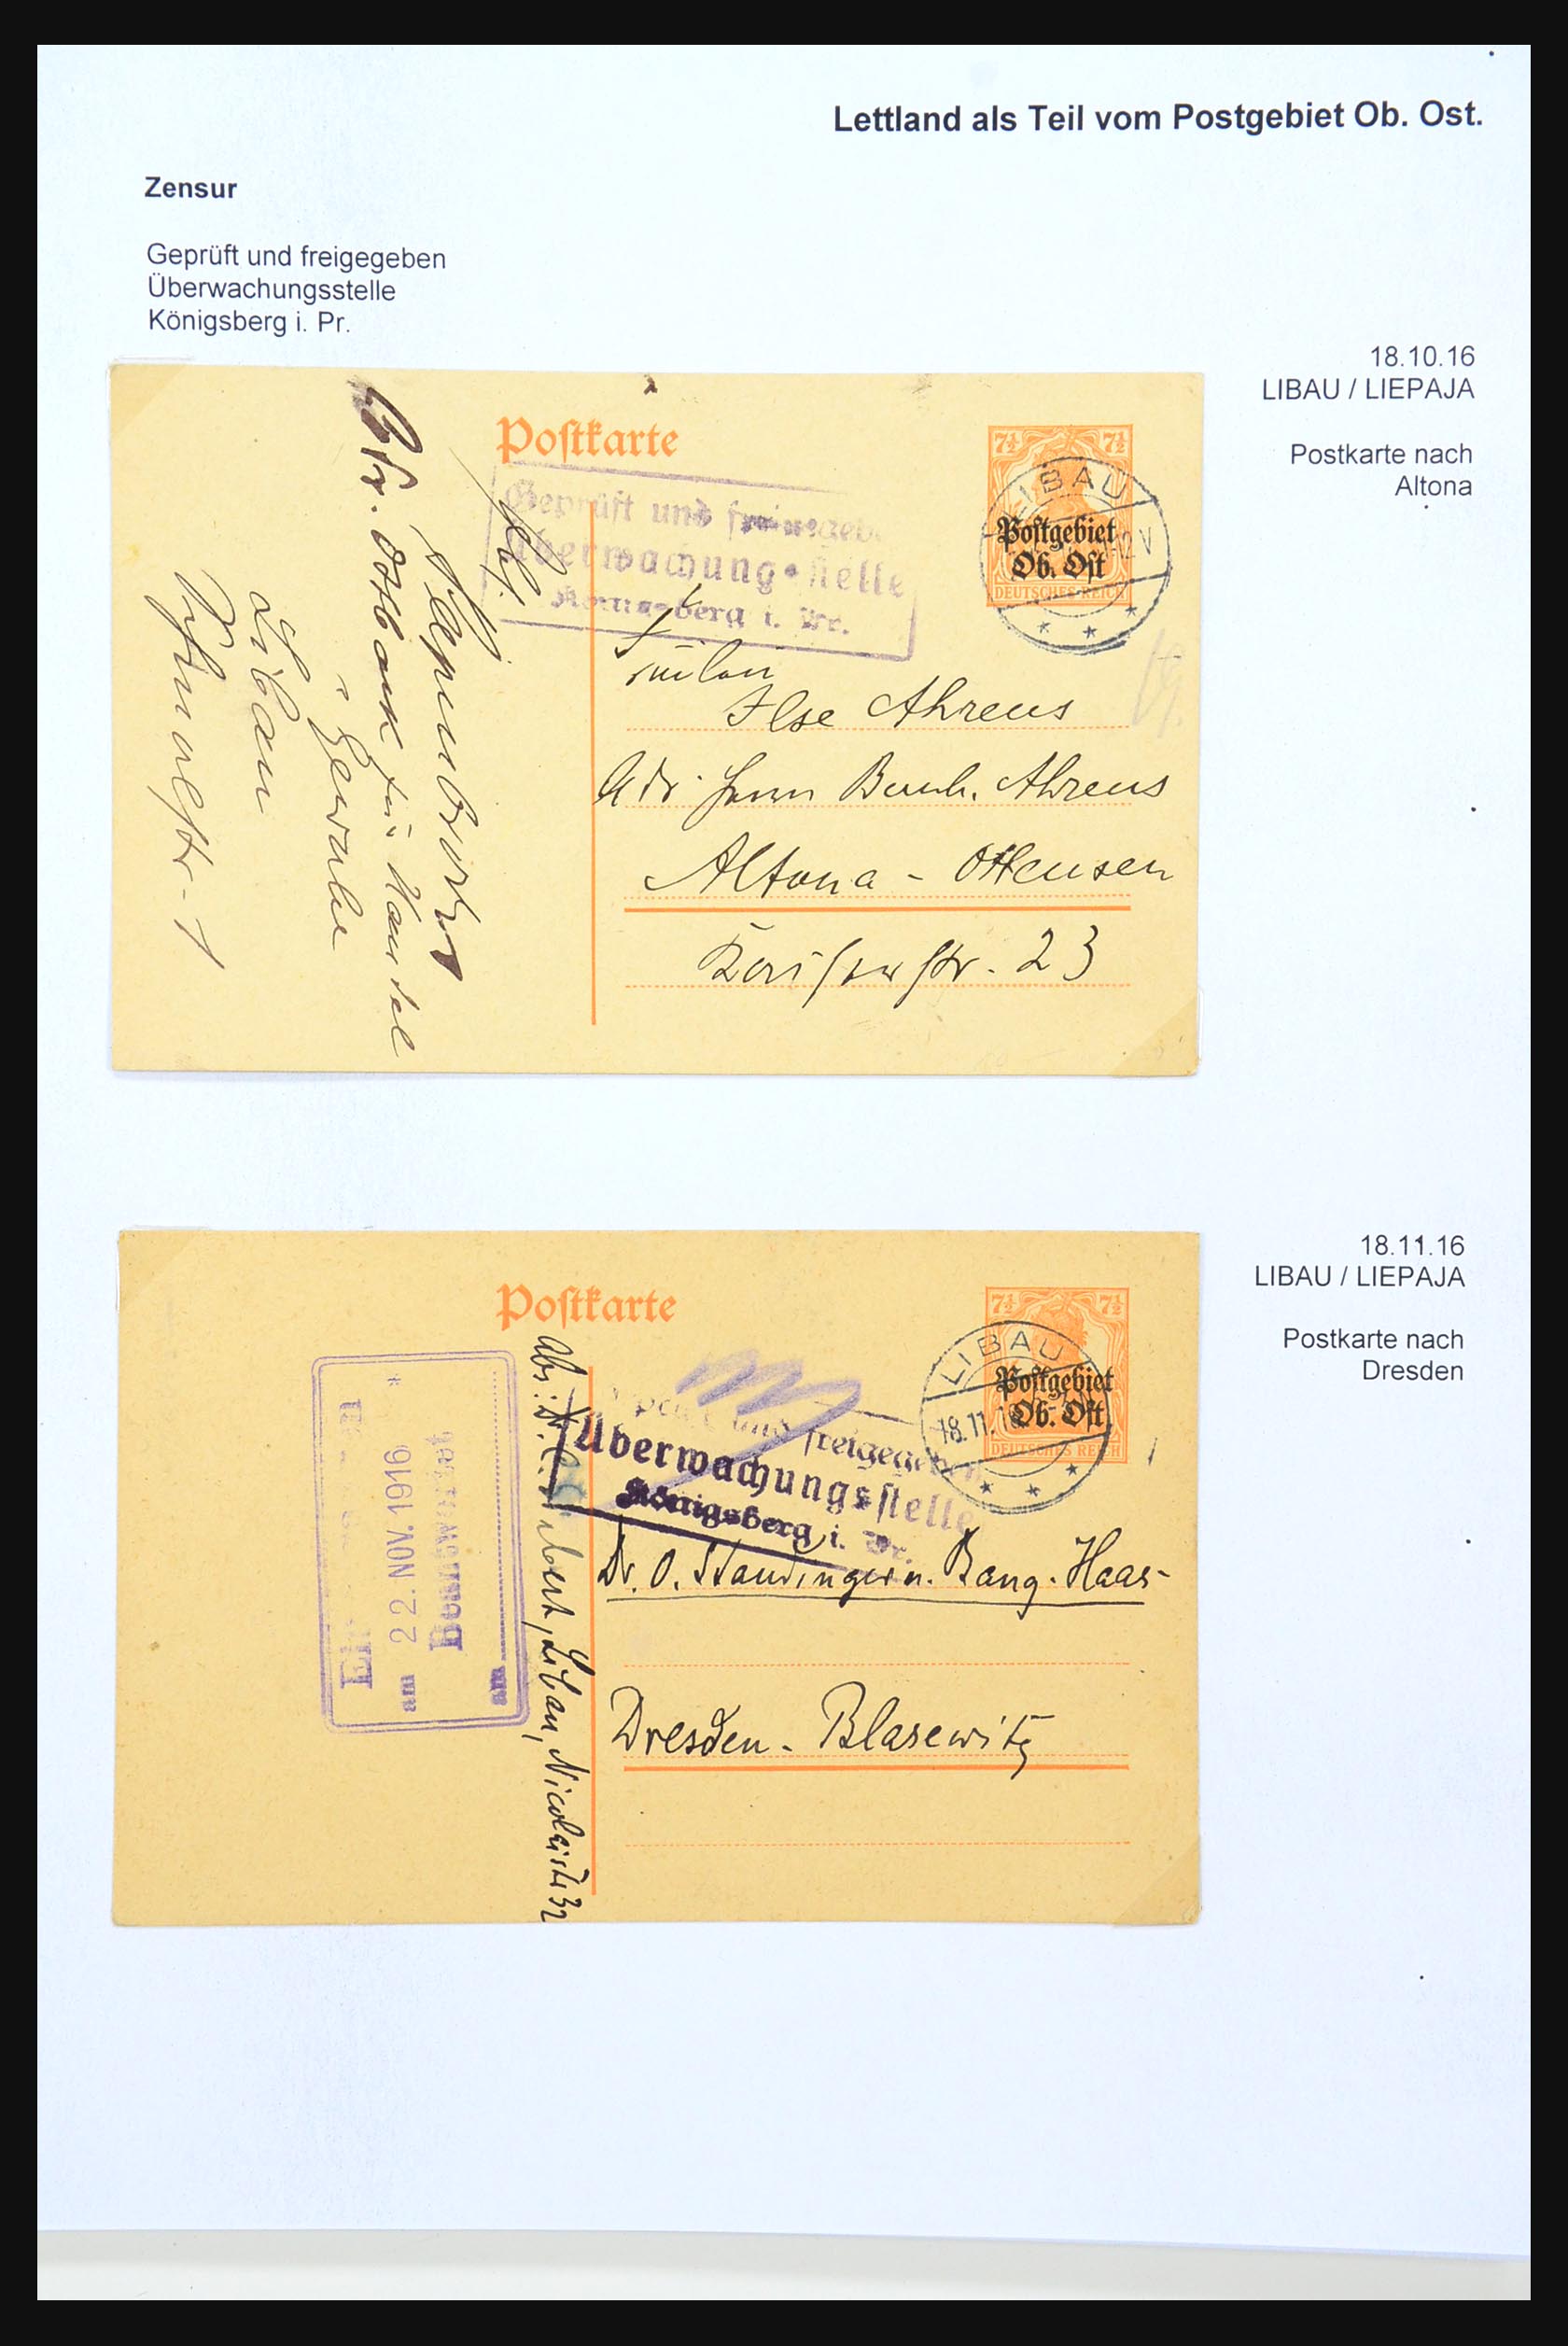 Lettland als Teil vom Postgebiet Ob. Ost.
Zensur
Geprüft und freigegeben
Überwachungsstelle
Königsberg i. Pr.
18.10.16
LIBAU / LIEPAJA
Postkarte nach
Altona
Postkarte
7½ 7½
LIBAU
Postgebiet
Ob. Ost
DEUTSCHES REICH
Geprüft und freigegeb
Überwachungsstelle
Königsberg i. Pr.
Abs.
Ostbank für Handel
Gewerbe
Libau
Fräulein
Ilse Ahrens
Adr. Herrn Bernh. Ahrens
Altona - Ottensen
23
18.11.16
LIBAU / LIEPAJA
Postkarte nach
Dresden
Postkarte
7½ 7½
LIBAU
18.11.
Postgebiet
Ob. Ost
DEUTSCHES REICH
und freigegeben
Überwachungsstelle
Königsberg i. Pr.
am 22. NOV. 1916 *
Beantwortet
am
Abs: Dr. Libau, Nicolaistr 32
Dr. O. Staudinger u. Bang-Haas
Dresden - Blasewitz